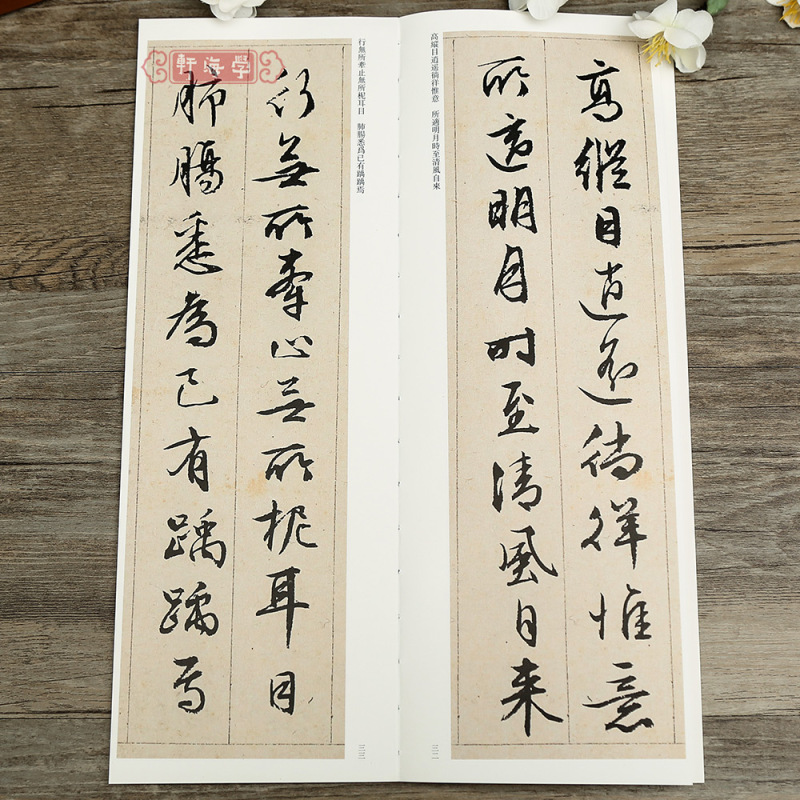 學海軒
高縱目逍遙徜徉惟意
所適明月時至清風自來
高縱目逍遙徜徉惟意 所適明月時至清風自來
三二
行無所牽止無所柅耳目
肺腸悉為己有踽踽焉
行無所牽止無所柅耳目 肺腸悉爲己有踽踽焉
三三